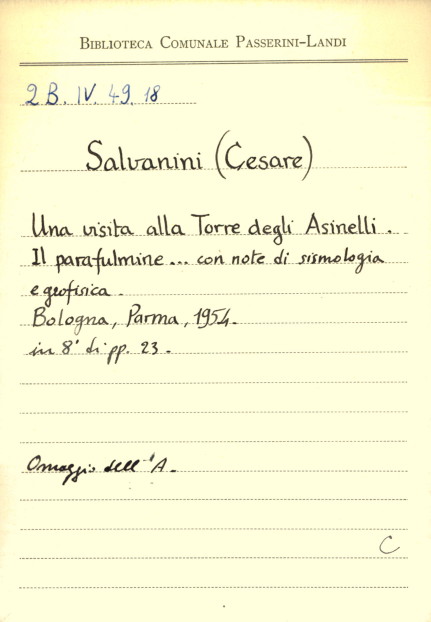 BIBLIOTECA COMUNALE PASSERINI-LANDI
2B. IV. 49. 18
Salvanini (Cesare)
Una visita alla Torre degli Asinelli.
Il parafulmine... con note di sismologia
e geofisica.
Bologna, Parma, 1954.
in 8° di pp. 23.
Omaggio dell'A.
C